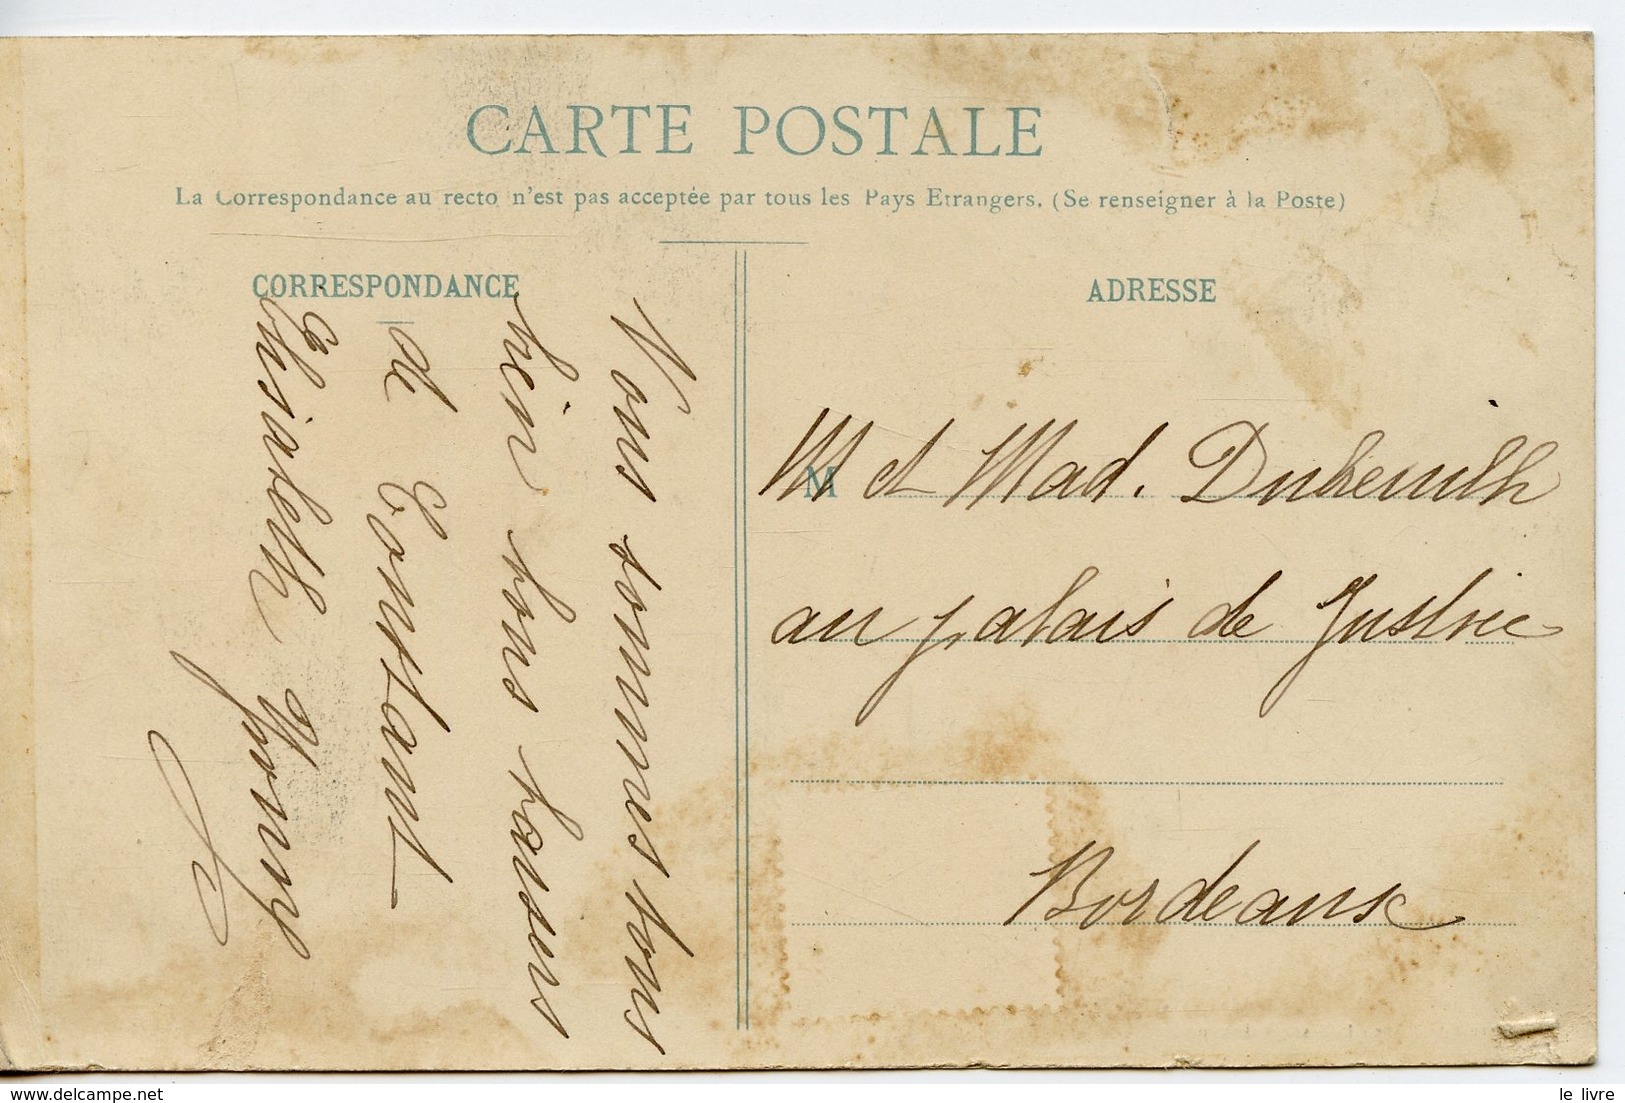 CARTE POSTALE
La Correspondance au recto n'est pas acceptée par tous les Pays Etrangers. (Se renseigner à la Poste)
CORRESPONDANCE
Nous sommes tous
bien tous
de Contant
Elisabeth
ADRESSE
M
M et Mad. Dubreuilh
au palais de Justice
Bordeaux
le livre